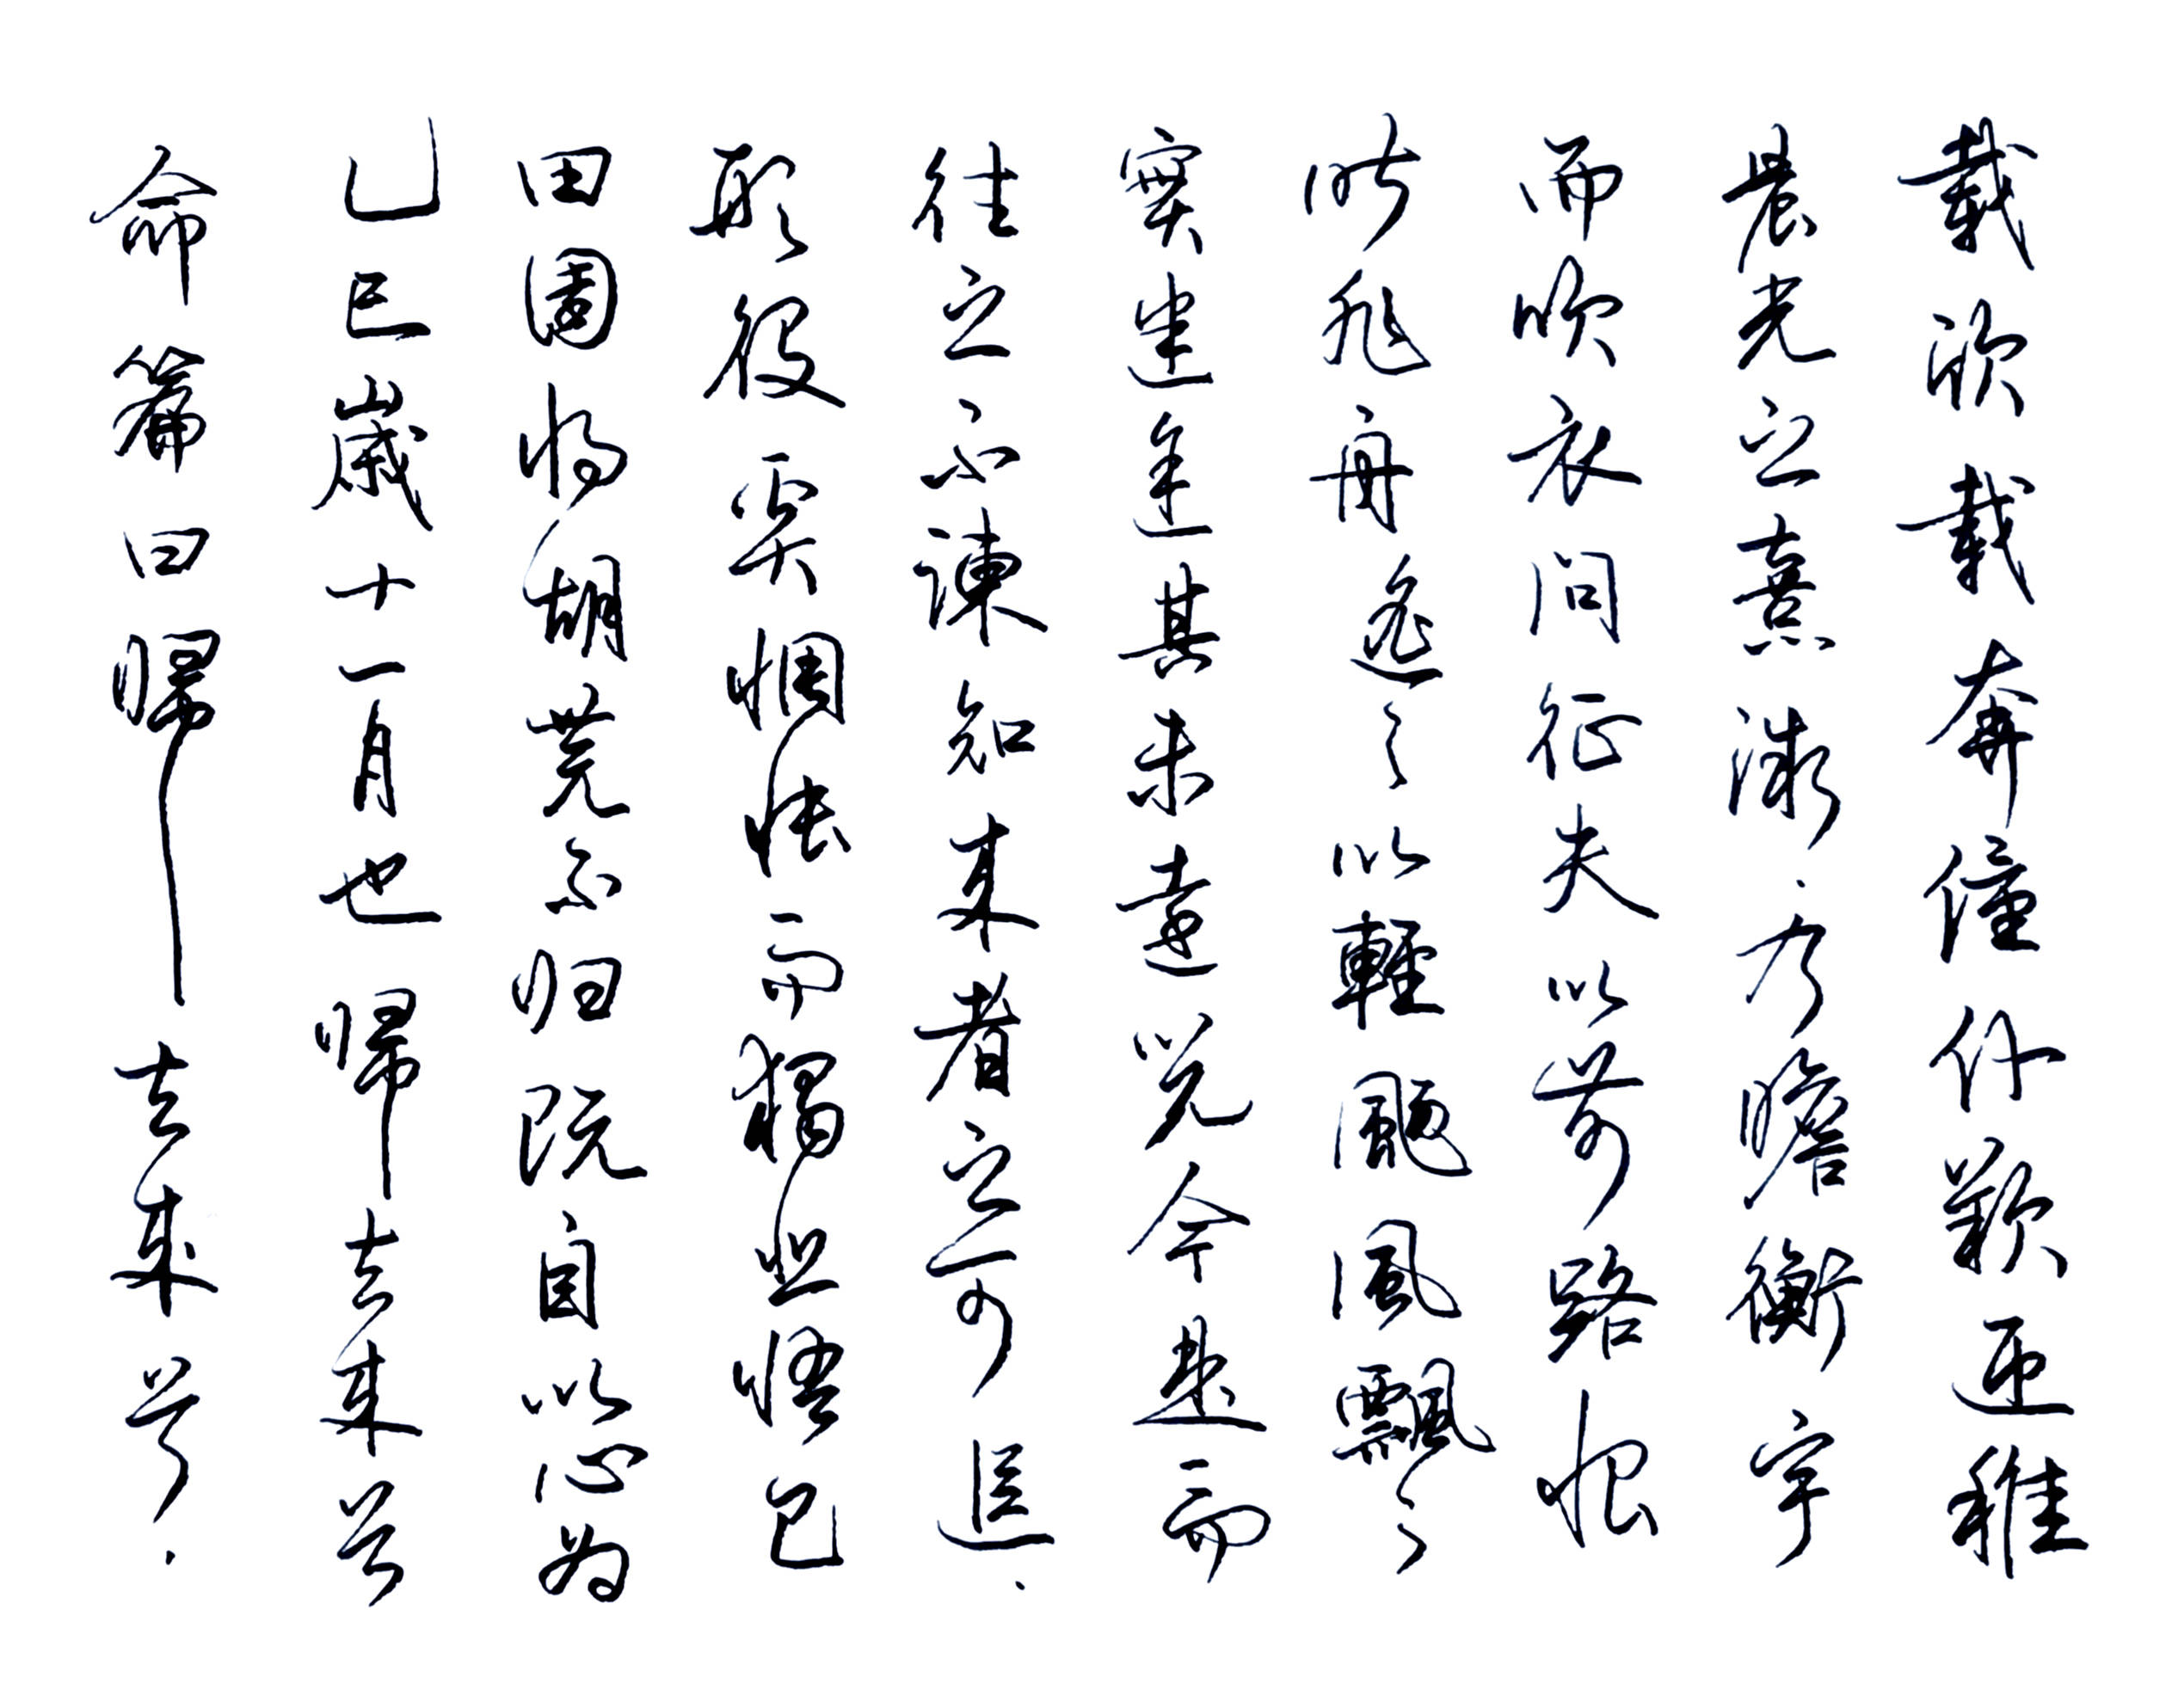 命篇曰歸去来兮
乙巳歲十一月也歸去来兮
田園将胡荒不归既自以心为
形役奚惆悵而獨悲悟已
往之不諫知来者之可追
實迷途其未遠覺今是而
昨非舟遙々以輕颺風飄々
而吹衣問征夫以前路恨
晨光之熹微乃瞻衡宇
載欣載奔僮仆歡迎稚